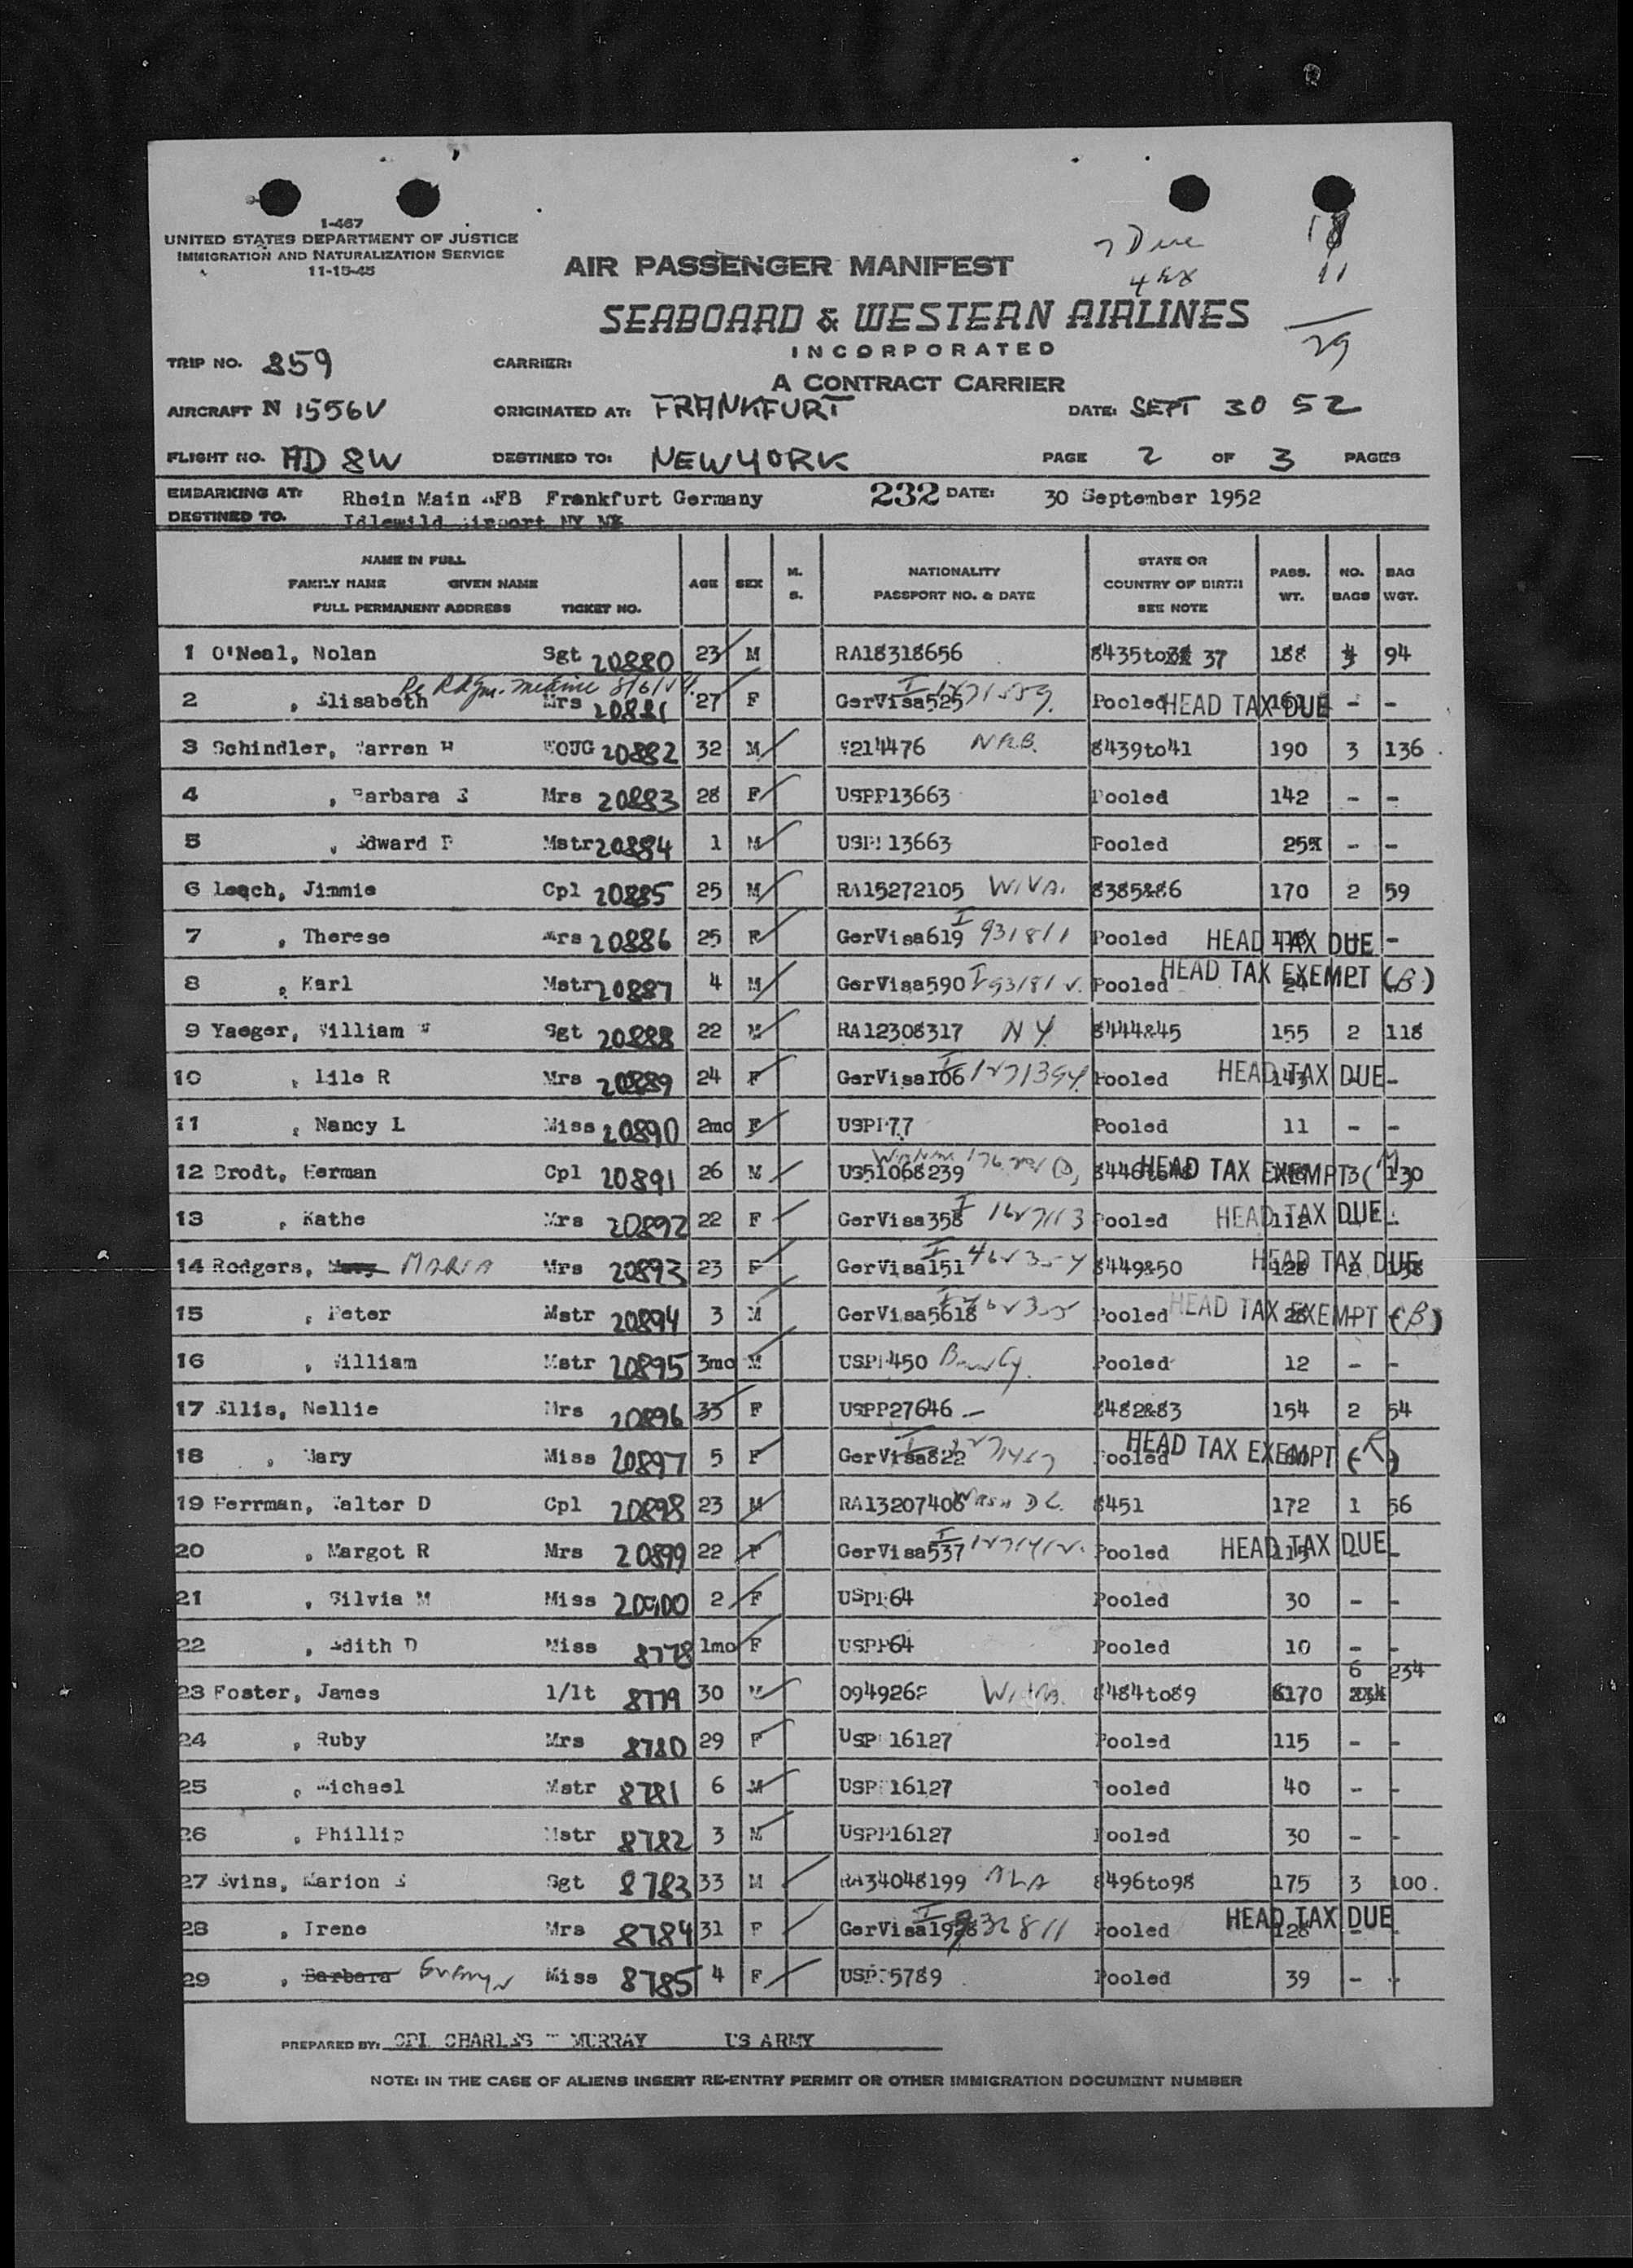 1-467
UNITED STATES DEPARTMENT OF JUSTICE
IMMIGRATION AND NATURALIZATION SERVICE
11-15-45
AIR PASSENGER MANIFEST
7 Due
4 EX
18
11
29
SEABOARD & WESTERN AIRLINES
INCORPORATED
A CONTRACT CARRIER
TRIP NO. 859 CARRIER:
AIRCRAFT N 1556V ORIGINATED AT: FRANKFURT DATE: SEPT 30 52
FLIGHT NO. AD 8W DESTINED TO: NEW YORK PAGE 2 OF 3 PAGES
EMBARKING AT: Rhein Main AFB Frankfurt Germany 232 DATE: 30 September 1952
DESTINED TO. Idlewild Airport NY
NAME IN FULL
FAMILY NAME GIVEN NAME
FULL PERMANENT ADDRESS TICKET NO.
AGE SEX M. S.
NATIONALITY PASSPORT NO. & DATE
STATE OR COUNTRY OF BIRTH SEE NOTE
PASS. WT. NO. BAGS BAG WGT.
1 O'Neal, Nolan Sgt 20880 23 M RA18318656 8435to 37 188 94
2 , Elisabeth Mrs 20881 27 F GerVisa525 I Pooled HEAD TAX DUE - -
3 Schindler, Warren H WOJG 20882 32 M W214476 8439to41 190 3 136
4 , Barbara Mrs 20883 28 F USPP13663 Pooled 142 - -
5 , Edward Mstr 20884 1 M USPP13663 Pooled 25 - -
6 Leach, Jimmie Cpl 20885 25 M RA15272105 W.VA. 8385&86 170 2 59
7 , Therese Mrs 20886 25 F GerVisa619 I 931811 Pooled HEAD TAX DUE -
8 , Karl Mstr 20887 4 M GerVisa590 I Pooled HEAD TAX EXEMPT (B)
9 Yaeger, William W Sgt 20888 22 M RA12308317 NY 8444&45 155 2 118
10 , Lile R Mrs 20889 24 F GerVisa106 I Pooled HEAD TAX DUE -
11 , Nancy L Miss 20890 2mo F USPP77 Pooled 11 - -
12 Brodt, Herman Cpl 20891 26 M US51068239 HEAD TAX EXEMPT 3 130
13 , Kathe Mrs 20892 22 F GerVisa358 I Pooled HEAD TAX DUE 112 -
14 Rodgers, MARIA Mrs 20893 23 F GerVisa151 I 8449&50 HEAD TAX DUE 2
15 , Peter Mstr 20894 3 M GerVisa5618 I Pooled HEAD TAX EXEMPT (B)
16 , William Mstr 20895 3mo M USPP450 Pooled 12 - -
17 Ellis, Nellie Mrs 20896 33 F USPP27646 8482&83 154 2 54
18 , Mary Miss 20897 5 F GerVisa822 I Pooled HEAD TAX EXEMPT
19 Herrman, Walter D Cpl 20898 23 M RA13207406 Wash DC. 8451 172 1 56
20 , Margot R Mrs 20899 22 F GerVisa537 I Pooled HEAD TAX DUE -
21 , Silvia M Miss 20900 2 F USPP64 Pooled 30 - -
22 , Edith D Miss 8778 1mo F USPP64 Pooled 10 - -
23 Foster, James 1/lt 8779 30 M 8484to89 170 6 234
24 , Ruby Mrs 8780 29 F USPP16127 Pooled 115 - -
25 , Michael Mstr 8781 6 M USPP16127 Pooled 40 - -
26 , Phillip Mstr 8782 3 M USPP16127 Pooled 30 - -
27 Evins, Marion E Sgt 8783 33 M RA34048199 ALA 8496to98 175 3 100
28 , Irene Mrs 8784 31 F I Pooled HEAD TAX DUE 128 - -
29 , Barbara Miss 8785 4 F USPP5789 Pooled 39 - -
PREPARED BY: CPL CHARLES T MURRAY US ARMY
NOTE: IN THE CASE OF ALIENS INSERT RE-ENTRY PERMIT OR OTHER IMMIGRATION DOCUMENT NUMBER